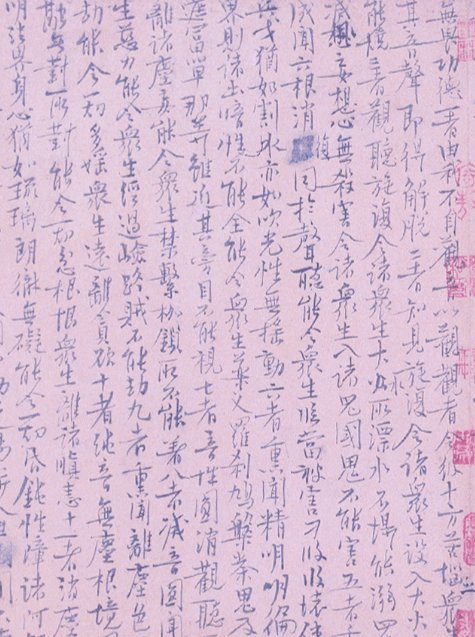 無畏功德一者由我不自觀音以觀觀者令彼十方苦惱眾
其音聲即得解脫二者知見旋復令諸眾生設入大火
能燒三者觀聽旋復令諸眾生大水所漂水不能溺四
滅妄想心無殺害令諸眾生入諸鬼國鬼不能害五者
成聞六根消復同於聲聽能令眾生臨當被害刀段段壞使
兵戈猶如割水亦如吹光性無搖動六者熏聞精明明徧
界則諸幽暗性不能全能令眾生藥叉羅剎鳩槃茶鬼及
遮富單那等雖近其旁目不能視七者音性圓消觀聽
離諸塵妄能令眾生禁繫枷鎖所不能著八者滅音圓聞
生慈力能令眾生經過嶮路賊不能劫九者熏聞離塵色
劫能令一切多婬眾生遠離貪欲十者純音無塵根境圓
融無對所對能令一切忿恨眾生離諸瞋恚十一者消塵
明法界身心猶如琉璃朗徹無礙能令一切昏鈍性障諸阿